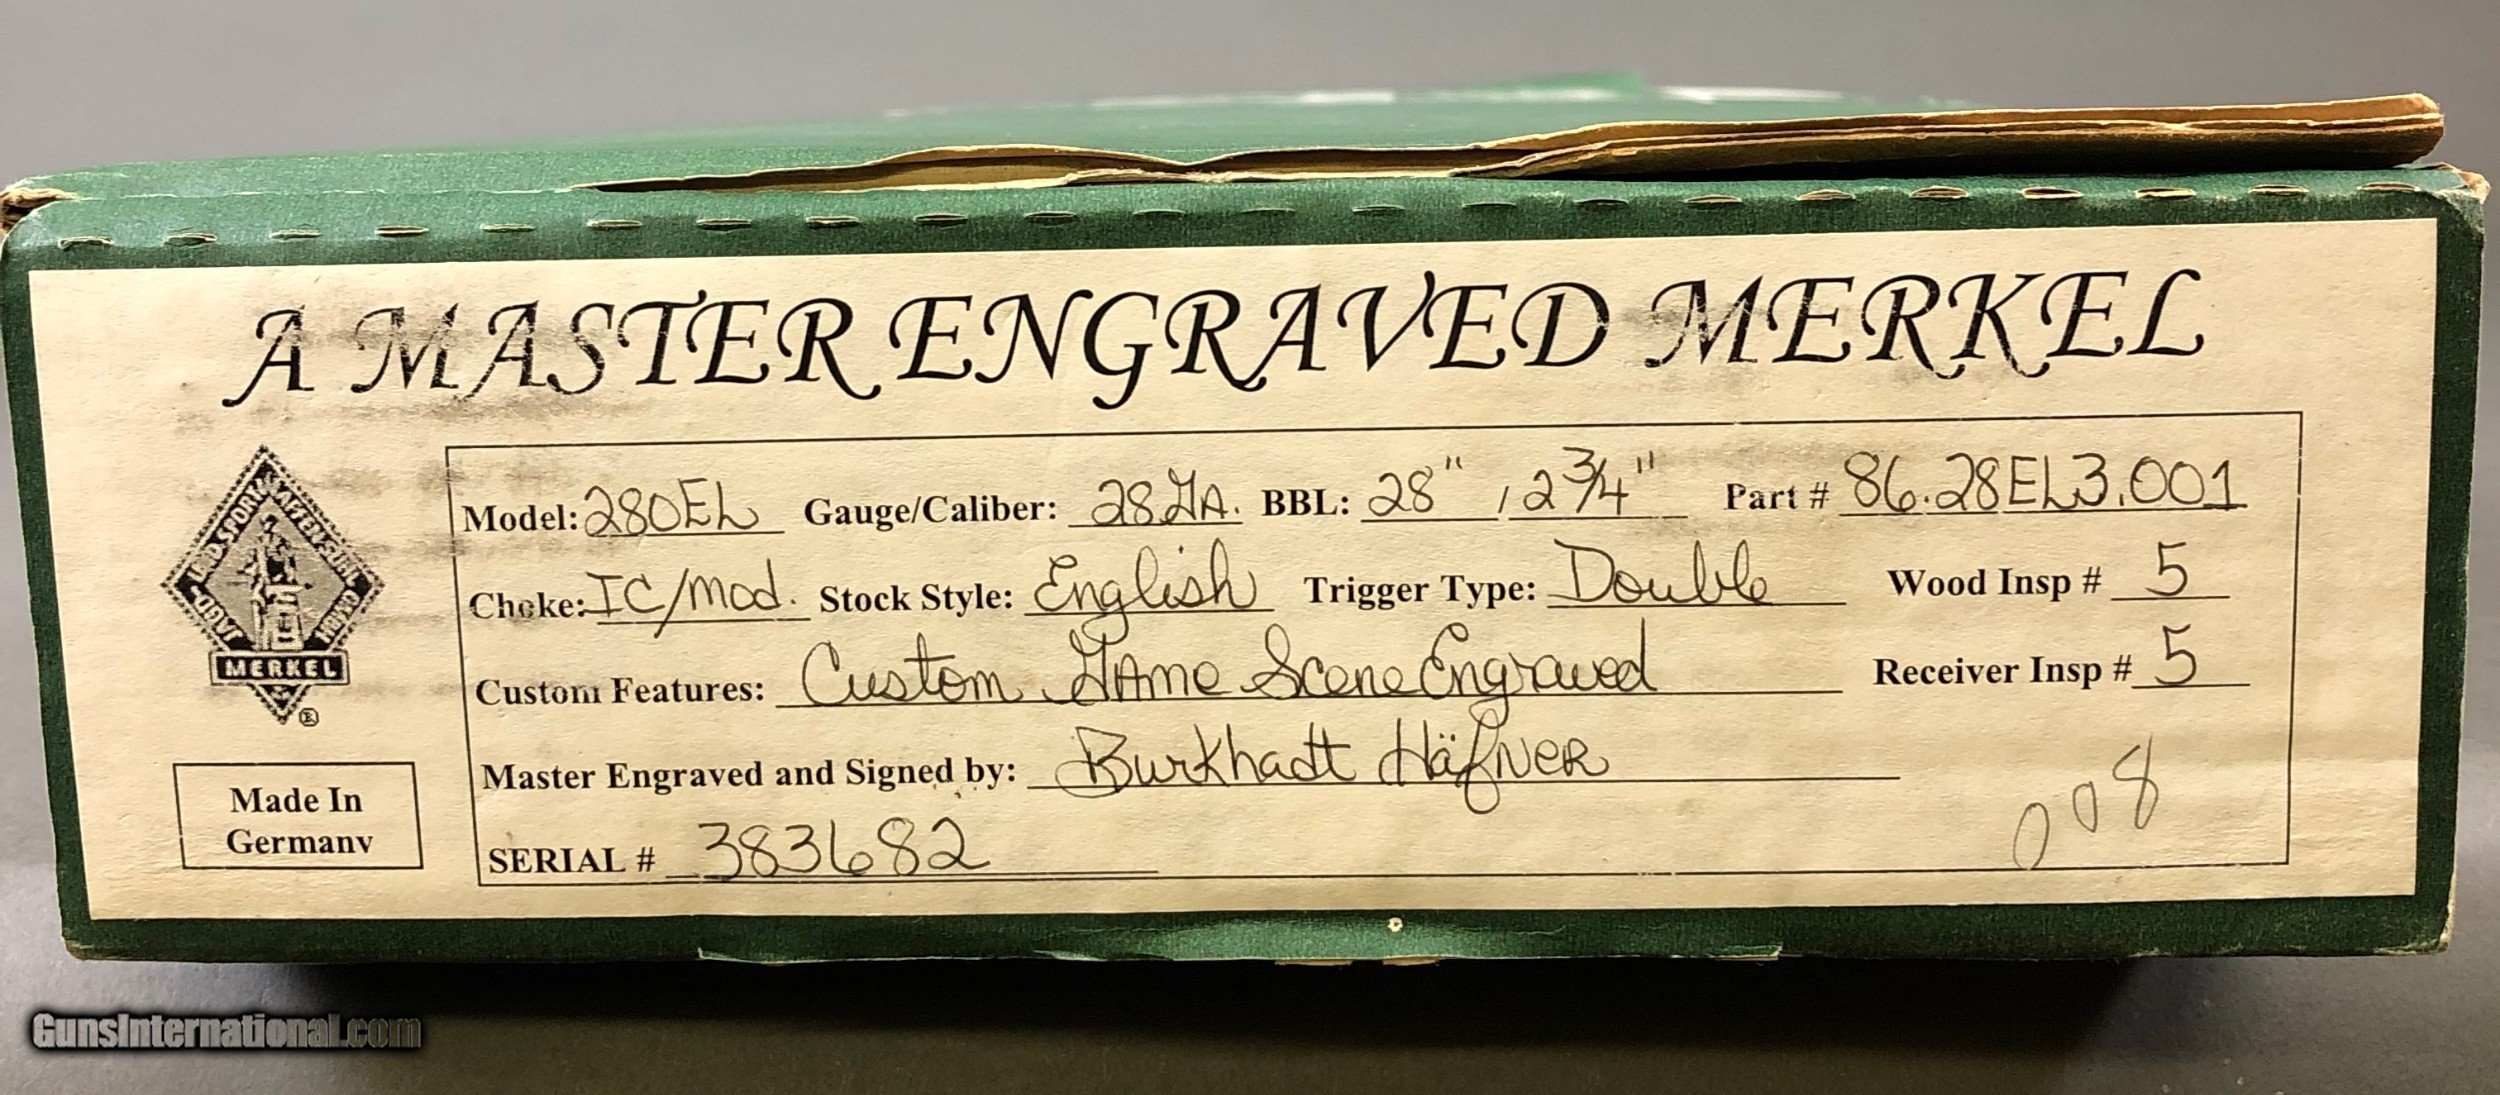 A MASTER ENGRAVED MERKEL
JAGD- UND SPORTWAFFEN SUHL
MERKEL
®
Made In
Germany
Model: 280EL Gauge/Caliber: 28GA. BBL: 28" , 2 3/4" Part # 86.28EL3.001
Choke: IC/mod. Stock Style: English Trigger Type: Double Wood Insp # 5
Custom Features: Custom GAme Scene Engraved Receiver Insp # 5
Master Engraved and Signed by: Burkhadt HäfNER
SERIAL # 383682
008
GunsInternational.com